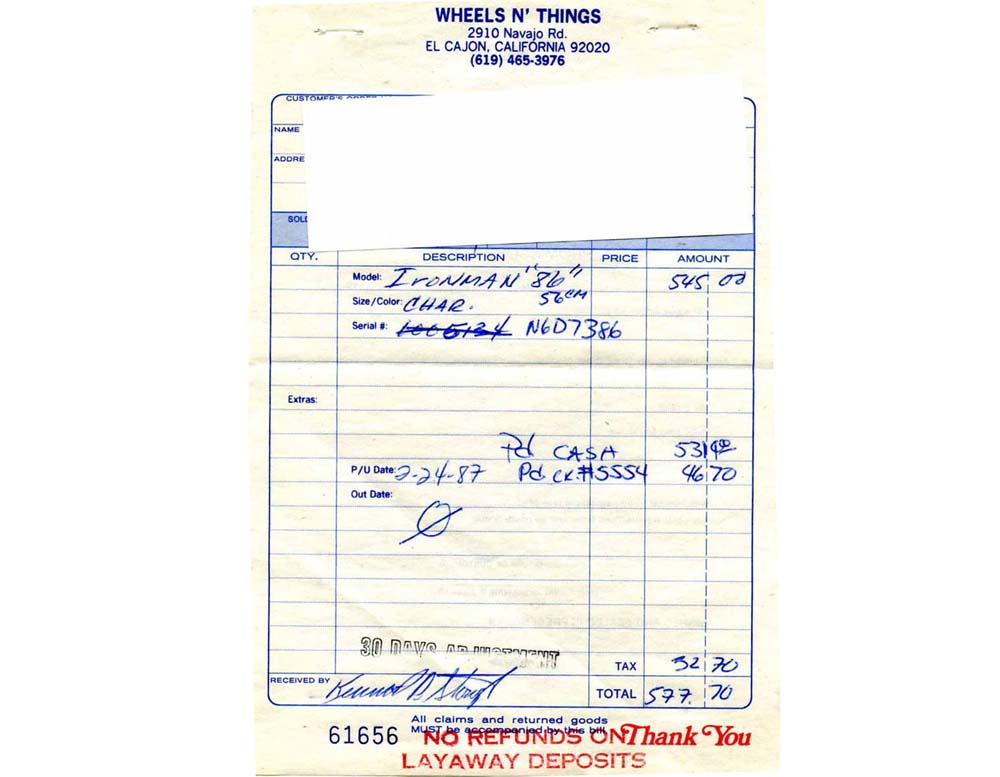 WHEELS N' THINGS
2910 Navajo Rd.
EL CAJON, CALIFORNIA 92020
(619) 465-3976
CUSTOMER'S
NAME
ADDRE
SOL
QTY. DESCRIPTION PRICE AMOUNT
Model: IRONMAN "86" 545 00
Size/Color: CHAR. 56 CM
Serial #: N6D7386
Extras:
Pd CASH 531 00
P/U Date: 2-24-87 Pd CK.#5554 46 70
Out Date:
30 DAYS ADJUSTMENT
TAX 32 70
RECEIVED BY TOTAL 577. 70
All claims and returned goods
MUST be accompanied by this bill
61656 NO REFUNDS ON Thank You
LAYAWAY DEPOSITS